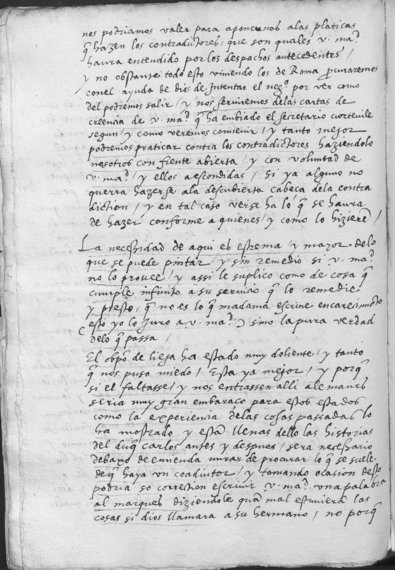 nos podriamos valer para oponernos a las platicas
q̃ hazen los contradictores, que son quales v. mag.
haura entendido por los despachos antecedentes /
y no obstante todo esto viniendo los de Roma procuraremos
con el ayuda de dios de intentar el neg.º por ver como
del podremos salir / y nos serviremos de las cartas de
creencia de v. mag. q̃ ha embiado el secretario
segun / y como veremos convenir / y tanto mejor
podremos praticar contra los contradictores haziendolo
nosotros con frente abierta / y con voluntad de
v. mag. / y ellos ascondidas / si ya alguno no
querra hazerse a la descubierta cabeça dela contra
diction / y en tal caso verse ha lo q̃ se haura
de hazer conforme a quienes / y como lo hiziere /
La necessidad de aqui es estrema y mayor de lo
que se puede pintar / y sin remedio si v. mag.
no lo provee / y assi le suplico como de cosa q̃
cumple infinito a su servicio q̃ lo remedie
y presto, q̃ no es lo q̃ madama escrive encarecimiento
esto yo lo juro a v. mag. / sino la pura verdad
delo q̃ passa /
El obpo de lieja ha estado muy doliente / y tanto
q̃ nos puso miedo / Esta ya mejor / y porq̃
si el faltasse / y nos entrassen alli alemanes
seria muy gran embaraço para estos estados
como la experiencia delas cosas passadas lo
ha mostrado y estan llenas dello las historias
del duq̃ Carlos antes y despues / sera necessario
debaxo de enmienda mirar de procurar lo q̃ se suele
de q̃ haya un coadiutor / y tomando ocasion desto
podria so correction escriuir v. mag. una palabra
al marques diziendole quan mal estuviera las
cosas si dios llamara a su hermano / no porq̃